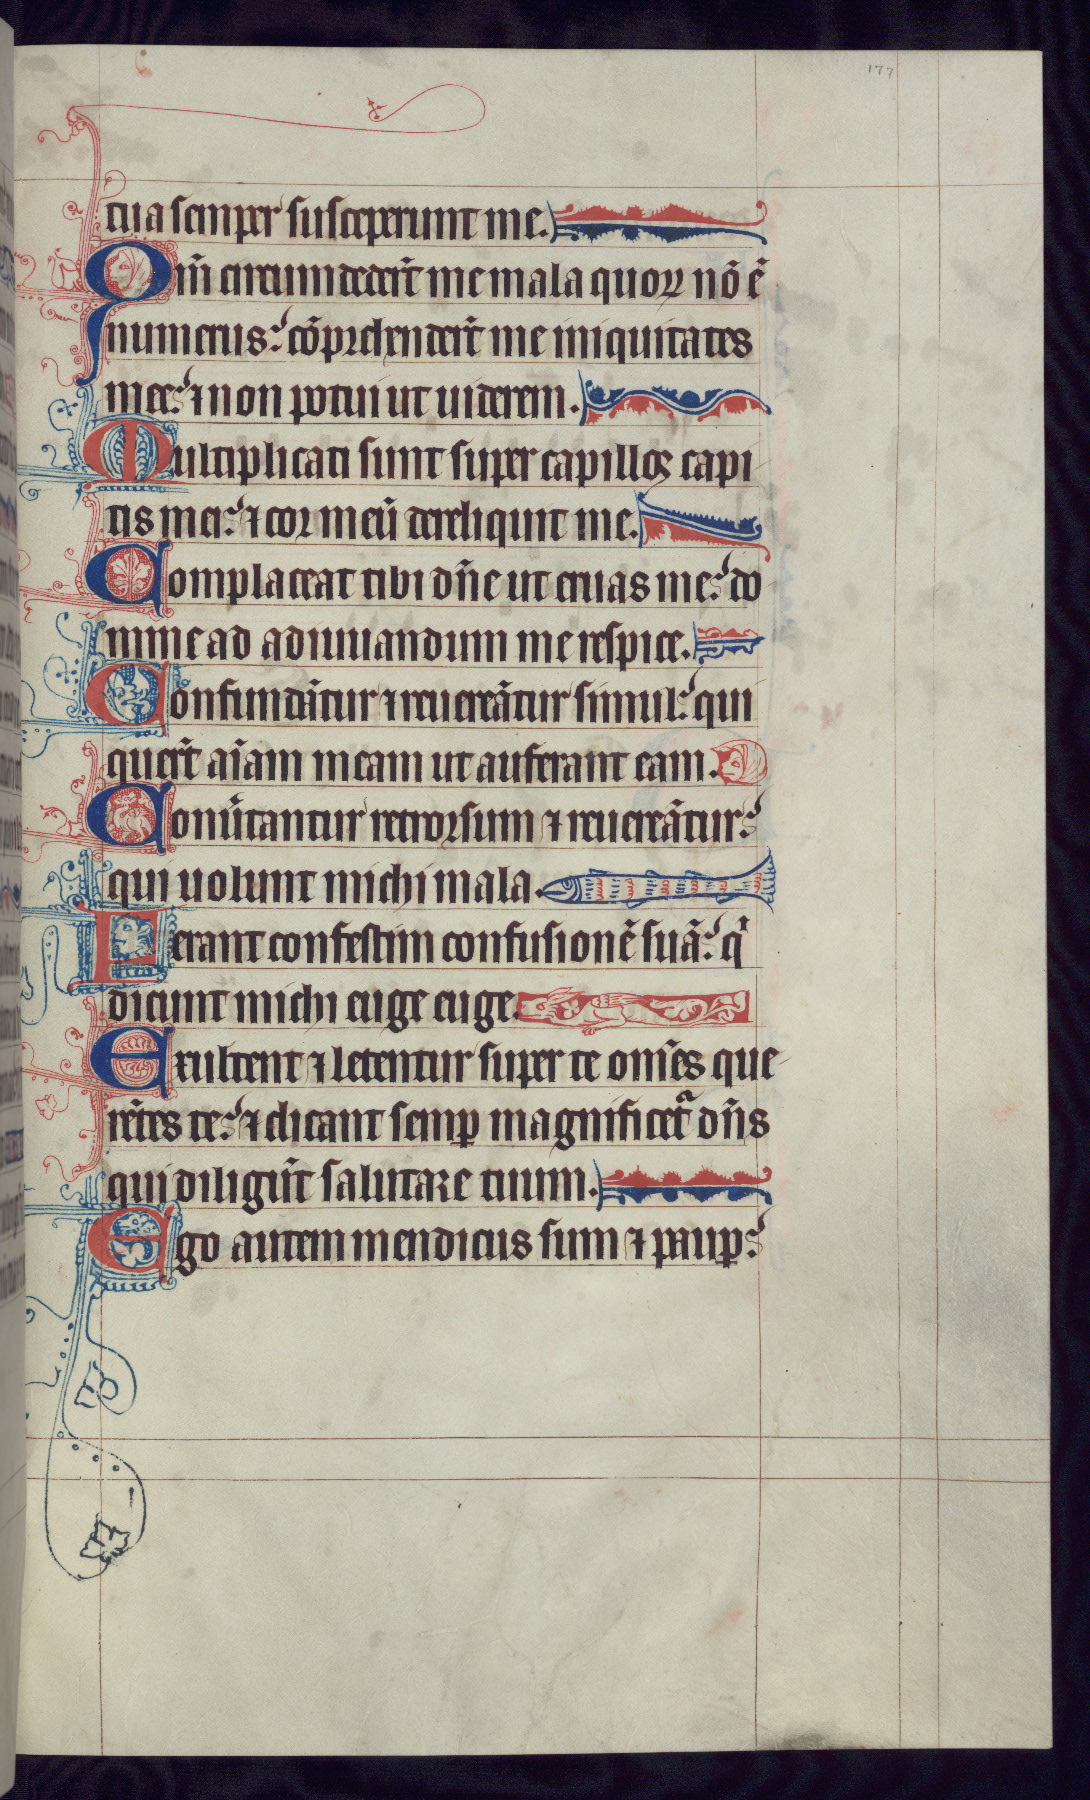 177
tua semper susceperunt me.
Qm̄ circumdeder̄t me mala quoꝝ nō ē
numerus: cōprehender̄t me iniquitates
mee: ⁊ non potui ut uiderem.
Multiplicati sunt super capillos capi
tis mei: ⁊ cor meū dereliquit me.
Complaceat tibi dn̄e ut eruas me: do
mine ad adiuuandum me respice.
Confundātur ⁊ reuereātur simul: qui
quer̄t aīam meam ut auferant eam.
Conu̾tantur retrorsum ⁊ reuereātur:
qui uolunt michi mala.
Ferant confestim confusionē suā: qͥ
dicunt michi euge euge.
Exultent ⁊ letentur super te om̄es que
rētes te: ⁊ dicant semꝑ magnificetᷓ dn̄s
qui diligūt salutare tuum.
Ego autem mendicus sum ⁊ pauꝑ: